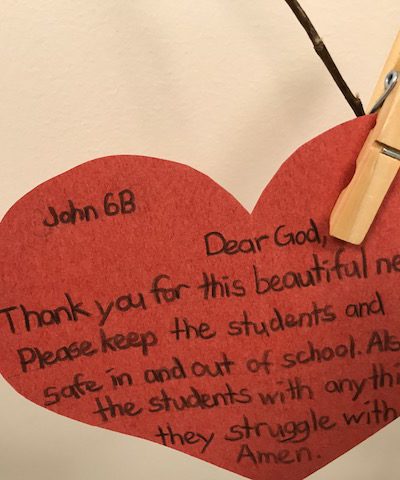 John 6B
Dear God,
Thank you for this beautiful
Please keep the students and
safe in and out of school.
the students with
they struggle with
Amen.